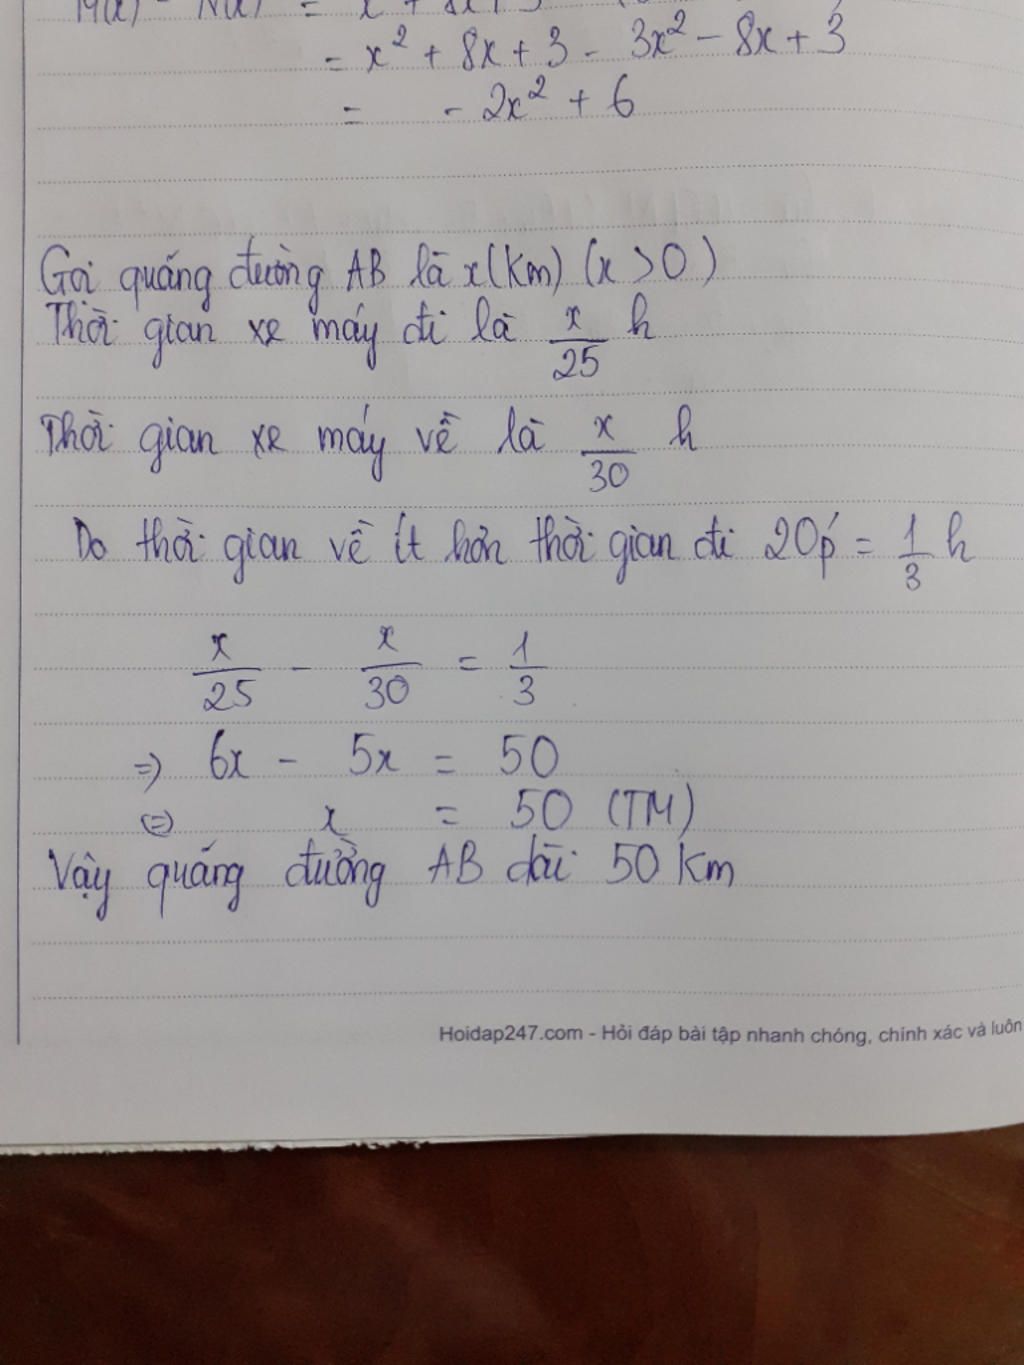 = x² + 8x + 3 - 3x² - 8x + 3
= - 2x² + 6
Gọi quãng đường AB là x(km) (x > 0)
Thời gian xe máy đi là x/25 h
Thời gian xe máy về là x/30 h
Do thời gian về ít hơn thời gian đi 20p' = 1/3 h
x/25 - x/30 = 1/3
=> 6x - 5x = 50
<=> x = 50 (TM)
Vậy quãng đường AB dài 50 km
Hoidap247.com - Hỏi đáp bài tập nhanh chóng, chính xác và luôn